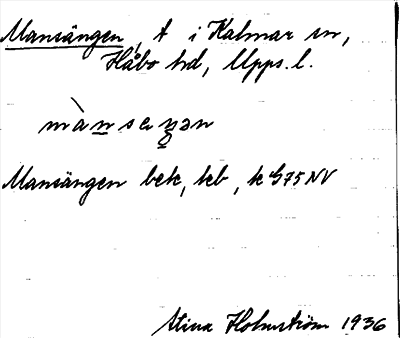 Mansängen, t i Kalmar sn,
Håbo hd, Upps. l.
mànsæŋən
Mansängen bek, kb, k G75NV
Stina Holmström 1936